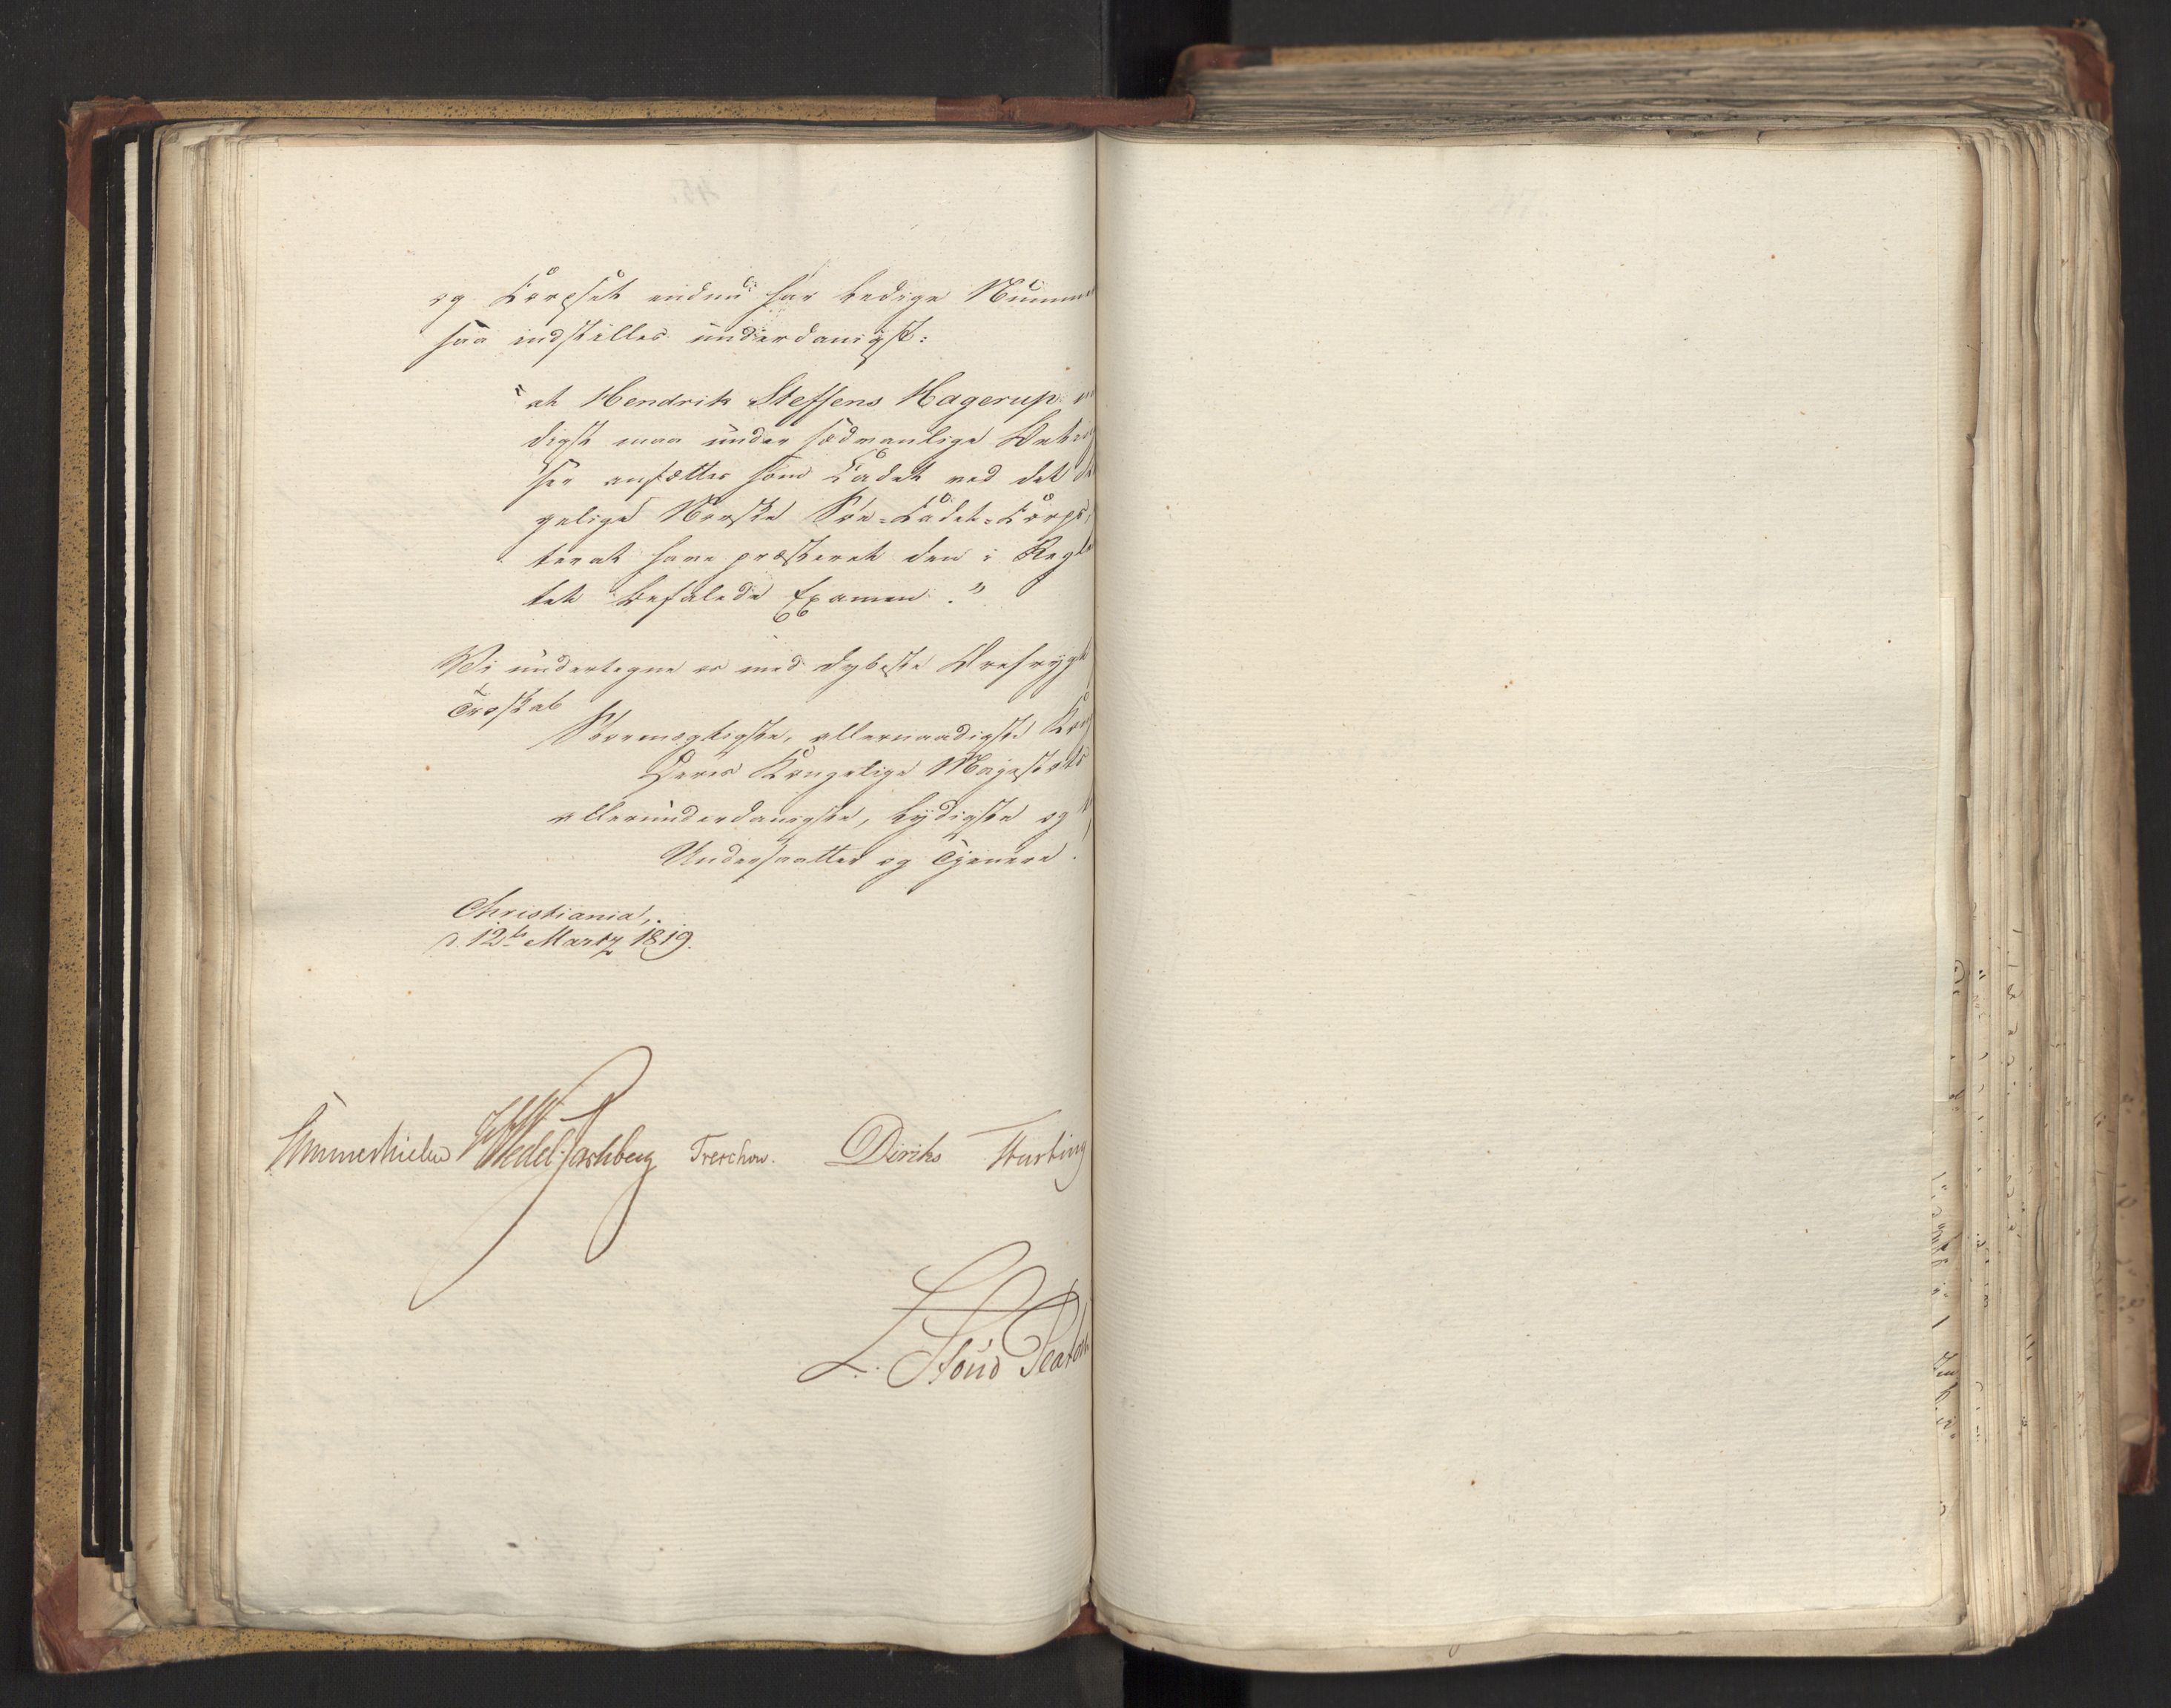 og Corpset endnu har ledige Numme
saa indstilles underdanigst:
"at Hendrik Steffens Hagerup
digst maa under sædvanlige Betin
ser ansættes som Cadet ved det
gelige Norske Søe-Cadet-Corps,
terat have præsteret den i Regle
tet befalede Examen."
Vi undertegne os med dybeste Ærefrygt
Troskab
Stormægtigste, allernaadigste Kong
Deres Kongelige Majestæts
allerunderdanigste, lydigste og
Undersaatter og Tjenere.
Christiania,
d. 12te Martz 1819.
Sommerhielm Wedel Jarlsberg Treschow. Diriks Fasting
L. Stoud Platou